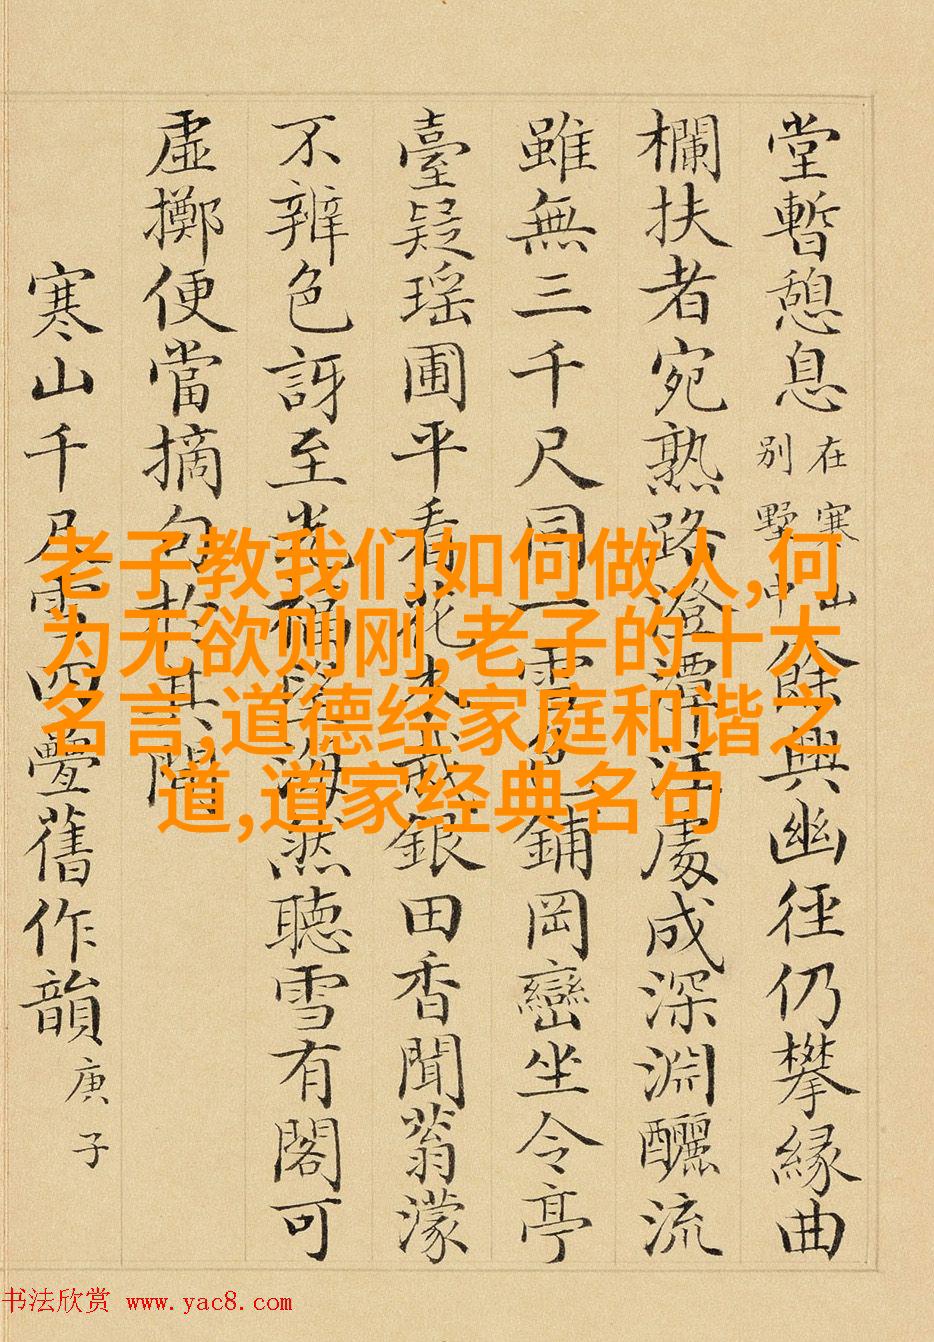 堂暫憩息在寒山別墅中餘興幽徑仍攀緣曲
欄扶者宛熟路澄潭注處成深淵釃流
雖無三千尺同一雪色鋪岡巒坐令亭
臺疑瑤圃平看花木裁銀田香聞蓊濛
不辨色訝至光海然聽雪有閣可
虛擲便當摘句於其間
寒山千尺雪四疊舊作韻 庚子
老子教我们如何做人,何
为无欲则刚,老子的十大
名言,道德经家庭和谐之
道,道家经典名句
书法欣赏 www.yac8.com